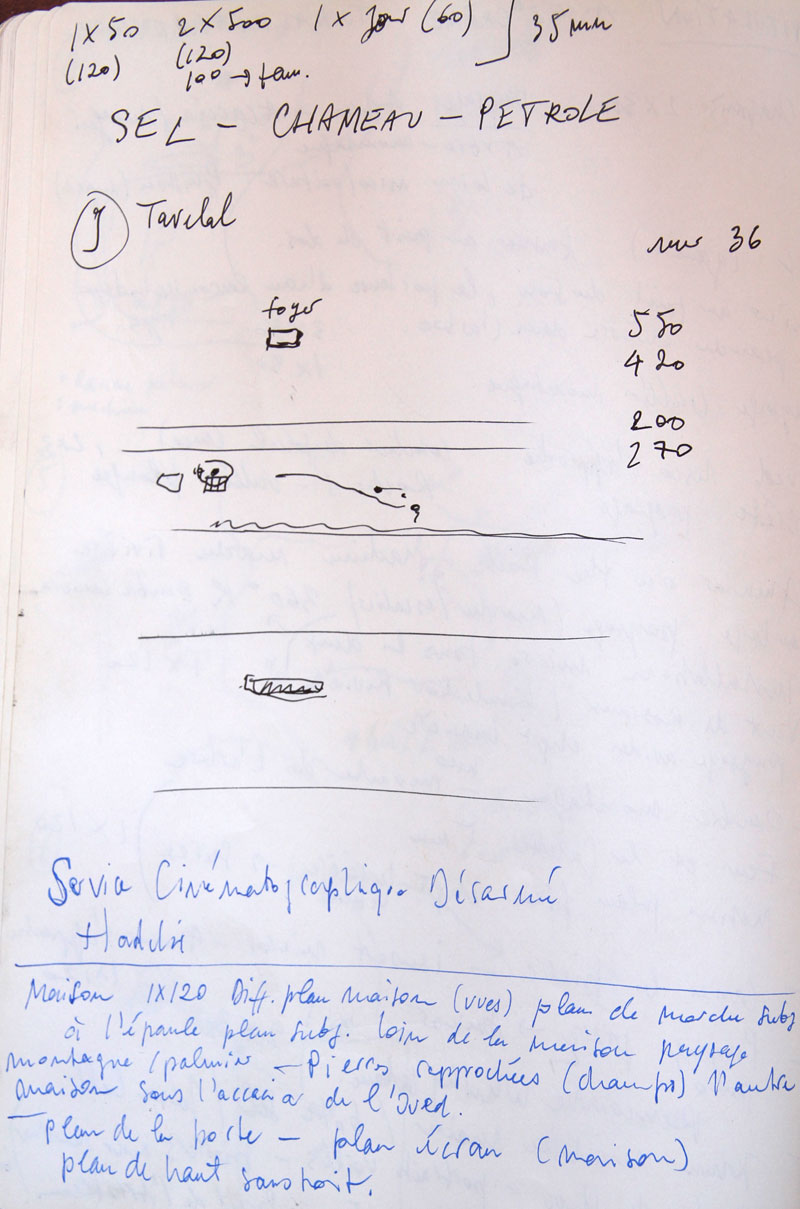 1 X 50 2 X 500 1 X Jour (60) 35 mm
(120) (120)
100 → fam.
SEL - CHAMEAU - PETROLE
J Tavelal
mur 36
foyer
550
420
200
270
Service Cinématographique Désarmé
Haddri
Maison 1X120 Diff. plan maison (vues) plan de marche subj
à l'épaule plan subj. loin de la maison paysage
montagne / palmier - Pierres rapprochées (champs) l'autre
maison sous l'accacia de l'Oued.
- plan de la porte - plan écran (maison)
plan de haut sans toit.